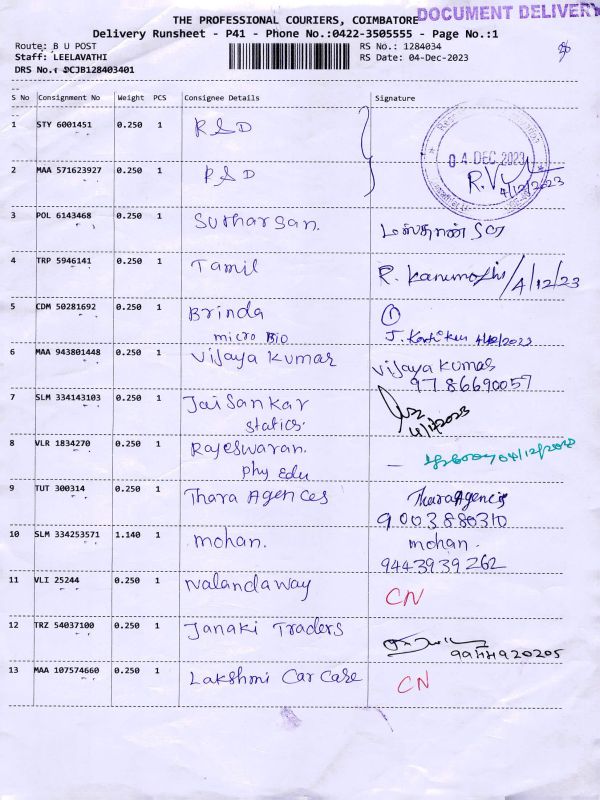 DOCUMENT DELIVERY
THE PROFESSIONAL COURIERS, COIMBATORE
Delivery Runsheet - P41 - Phone No.:0422-3505555 - Page No.:1
Route: B U POST
RS No.: 1284034
Staff: LEELAVATHI
RS Date: 04-Dec-2023
DRS No.: DCJB128403401
S No Consignment No Weight PCS Consignee Details Signature
1 STY 6001451 0.250 1 R&D
04 DEC 2023
2 MAA 571623927 0.250 1 R&D
4/12/2023
3 POL 6143468 0.250 1 Sutharsan.
4 TRP 5946141 0.250 1 Tamil R. Kanimozhi/4/12/23
5 CDM 50281692 0.250 1 Brinda ①
micro Bio
6 MAA 943801448 0.250 1 Vijaya Kumar vijaya kumar
9786690057
7 SLM 334143103 0.250 1 Jaisankar
statics. 4/12/2023
8 VLR 1834270 0.250 1 Rajeswaran. 04/12/2023
phy Edu
9 TUT 300314 0.250 1 Thara Agences Thara Agencis
9003880310
10 SLM 334253571 1.140 1 mohan. mohan.
9443939262
11 VLI 25244 0.250 1 Nalandaway CN
12 TRZ 54037100 0.250 1 Janaki Traders
13 MAA 107574660 0.250 1 Lakshmi Car Care CN